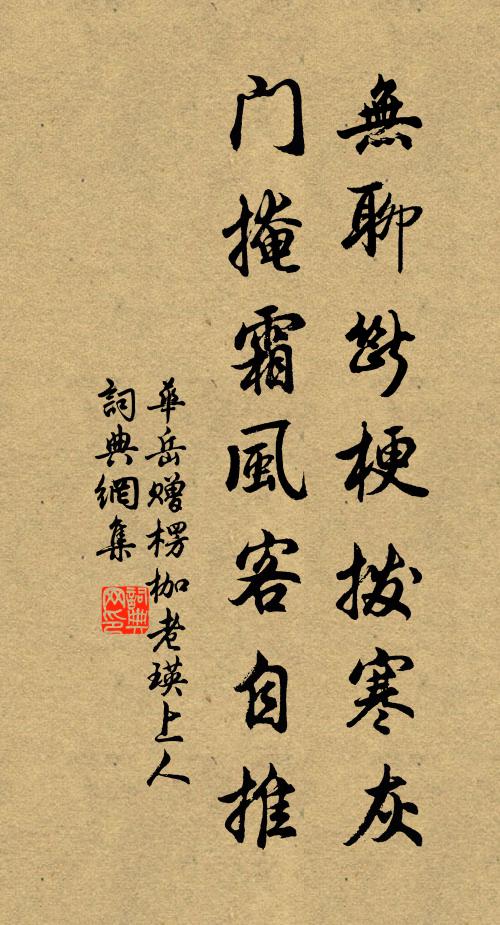 無聊斷梗撥寒灰
门掩霜風客自推
華岳赠楞枷老瑛上人
詞典網集
詞典网印